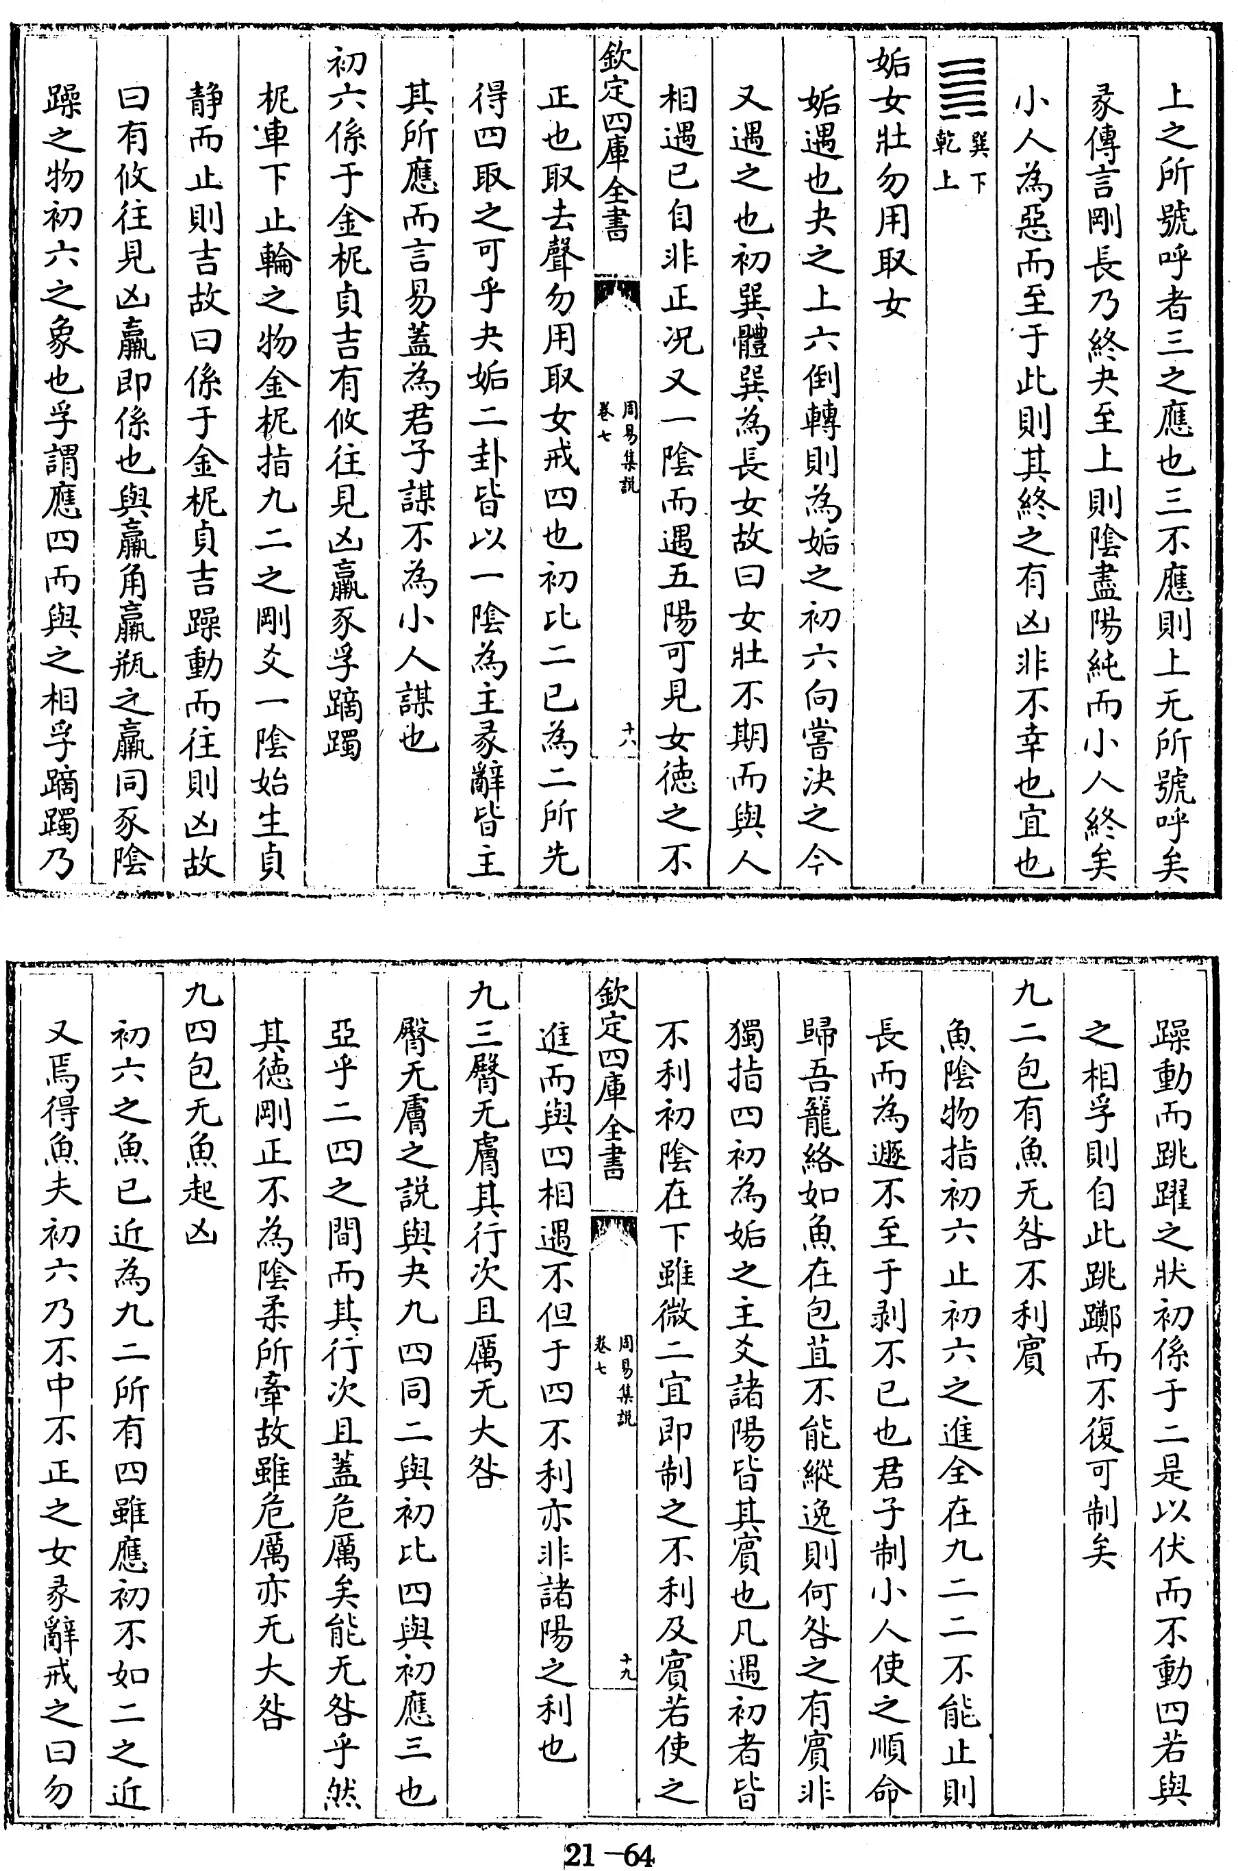 上之所號呼者三之應也三不應則上无所號呼矣
彖傳言剛長乃終夬至上則陰盡陽純而小人終矣
小人為惡而至于此則其終之有凶非不幸也宜也
巽下
乾上
姤女壯勿用取女
姤遇也夬之上六倒轉則為姤之初六向嘗決之今
又遇之也初巽體巽為長女故曰女壯不期而與人
相遇已自非正况又一陰而遇五陽可見女德之不
欽定四庫全書
周易集說
卷七
十八
正也取去聲勿用取女戒四也初比二已為二所先
得四取之可乎夬姤二卦皆以一陰為主彖辭皆主
其所應而言易蓋為君子謀不為小人謀也
初六係于金柅貞吉有攸往見凶羸豕孚蹢躅
柅車下止輪之物金柅指九二之剛爻一陰始生貞
静而止則吉故曰係于金柅貞吉躁動而往則凶故
曰有攸往見凶羸即係也與羸角羸瓶之羸同豕陰
躁之物初六之象也孚謂應四而與之相孚蹢躅乃
躁動而跳躍之狀初係于二是以伏而不動四若與
之相孚則自此跳躑而不復可制矣
九二包有魚无咎不利賔
魚陰物指初六止初六之進全在九二二不能止則
長而為遯不至于剥不已也君子制小人使之順命
歸吾籠絡如魚在包苴不能縱逸則何咎之有賔非
獨指四初為姤之主爻諸陽皆其賔也凡遇初者皆
不利初陰在下雖微二宜即制之不利及賔若使之
欽定四庫全書
周易集說
卷七
十九
進而與四相遇不但于四不利亦非諸陽之利也
九三臀无膚其行次且厲无大咎
臀无膚之説與夬九四同二與初比四與初應三也
亞乎二四之間而其行次且蓋危厲矣能无咎乎然
其德剛正不為陰柔所牽故雖危厲亦无大咎
九四包无魚起凶
初六之魚已近為九二所有四雖應初不如二之近
又焉得魚夫初六乃不中不正之女彖辭戒之曰勿
21-64